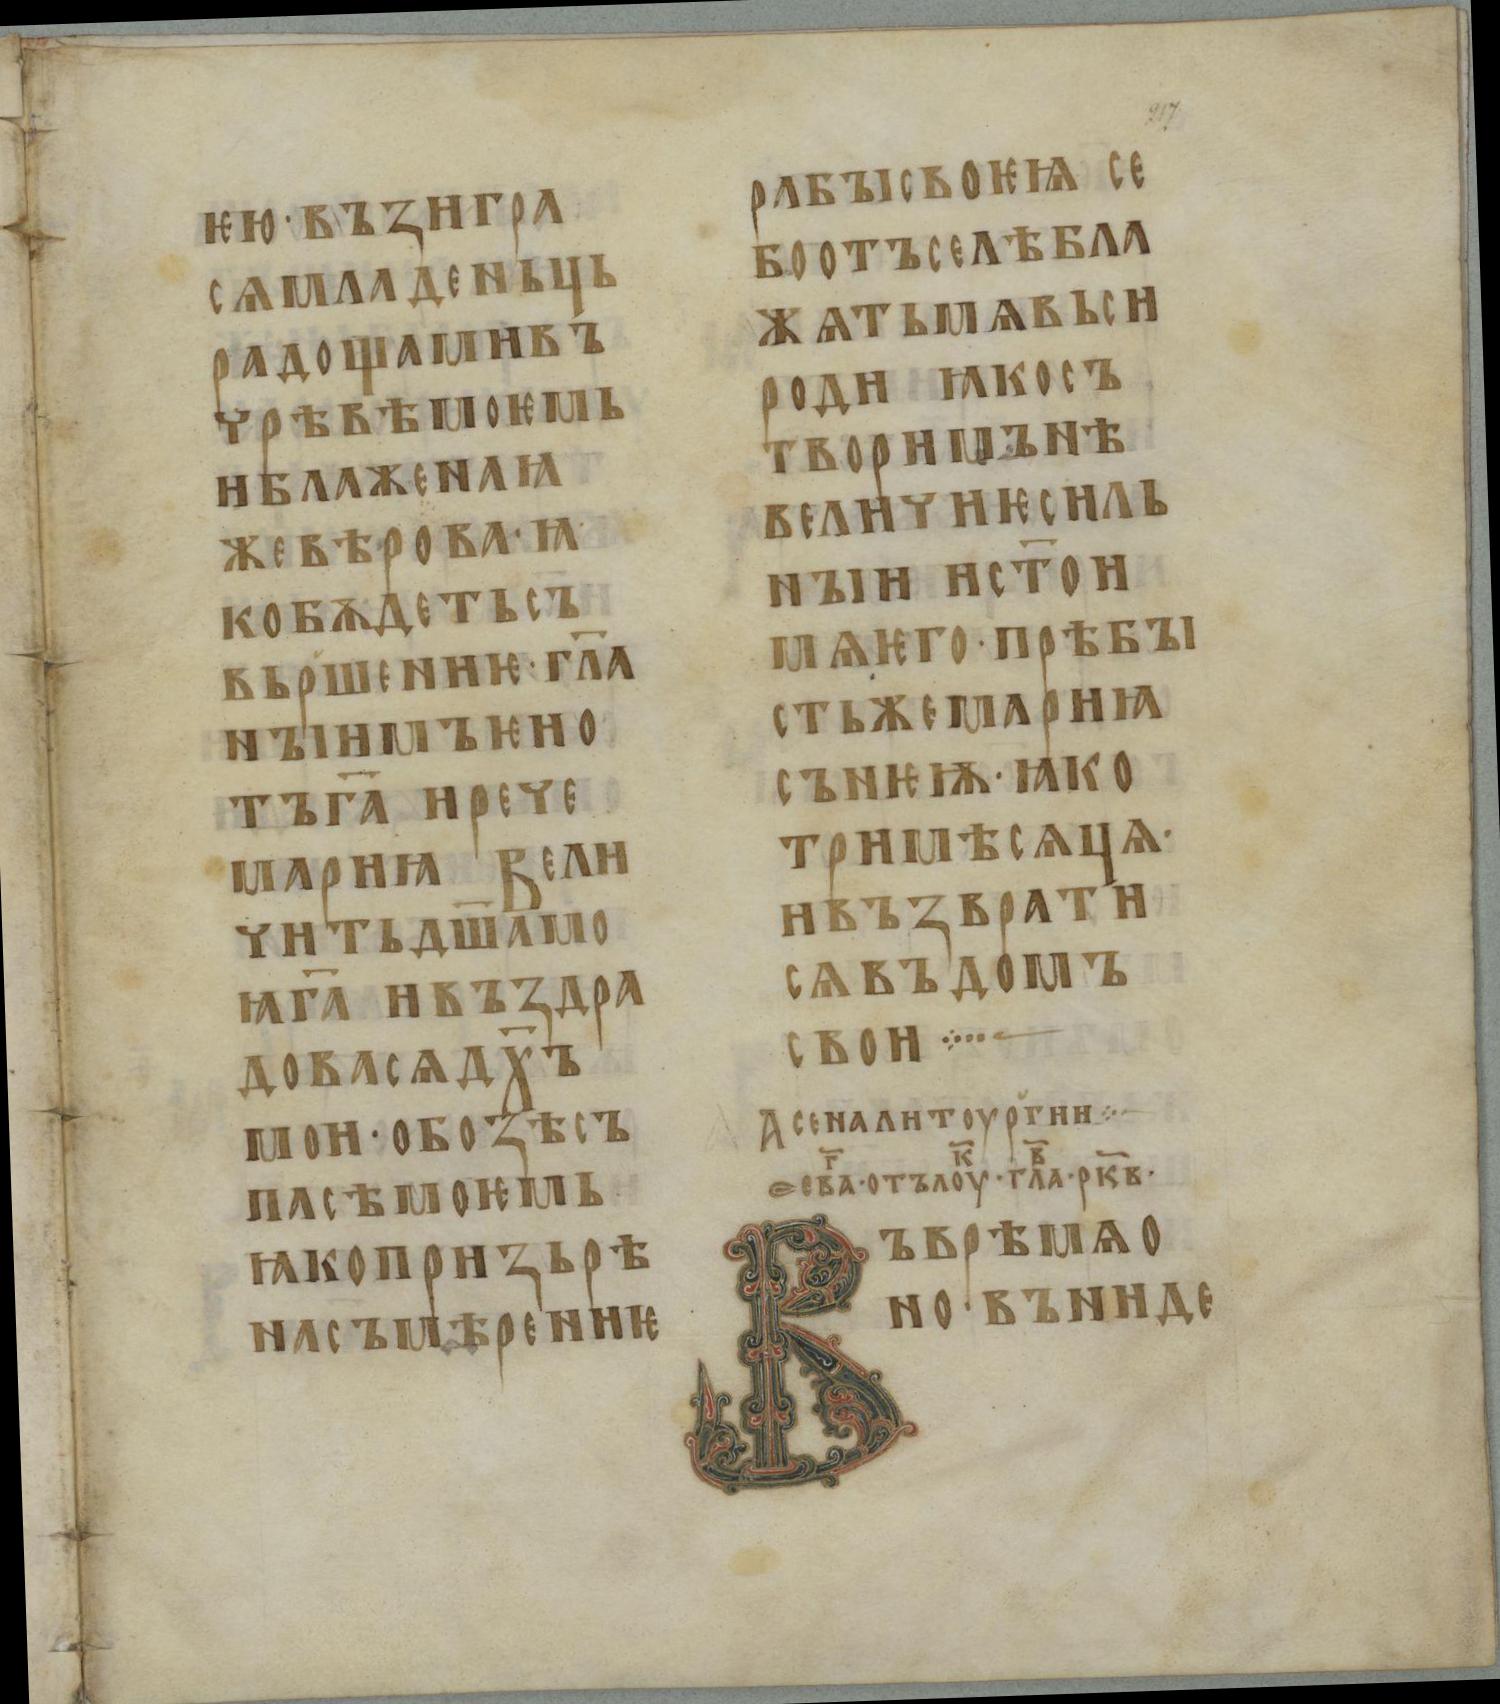 217
ѥю·въꙁигра
сѧмладеньць
радощамивъ
чрѣвѣмоѥмь
иблаженаꙗ
жевѣрова·ꙗ
кобѫдетьсъ
вьршениѥ·гл҃а
нъıимъѥно
тъг҃а иречe
мариꙗ Вели
читьдш҃амо
ꙗг҃а ивъꙁдра
довасѧдх҃ъ
мои·обоꙁѣсъ
пасѣмоѥмь
ꙗкопризьрѣ
насъмѣрениѥ
рабъıсвоѥѩ се
боотъселѣбла
жѧтьмѧвьси
роди ꙗкосъ
творимънѣ
величиѥсиль
нъıи ист҃ои
мѧѥго·прѣбъı
стьжемариꙗ
сънѥѭ·ꙗко
тримѣсѧцѧ·
ивъꙁврати
сѧвъдомъ
свои ⁘··—
Асеналитоургии⁘—
г҃ к҃ в҃
ѳева·отълоу·гла·рк҃в·
Въврѣмѧо
но·въниде